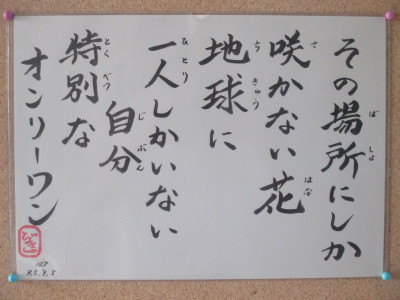 その場所にしか
咲かない花
地球に
一人しかいない
自分
特別な
オンリーワン